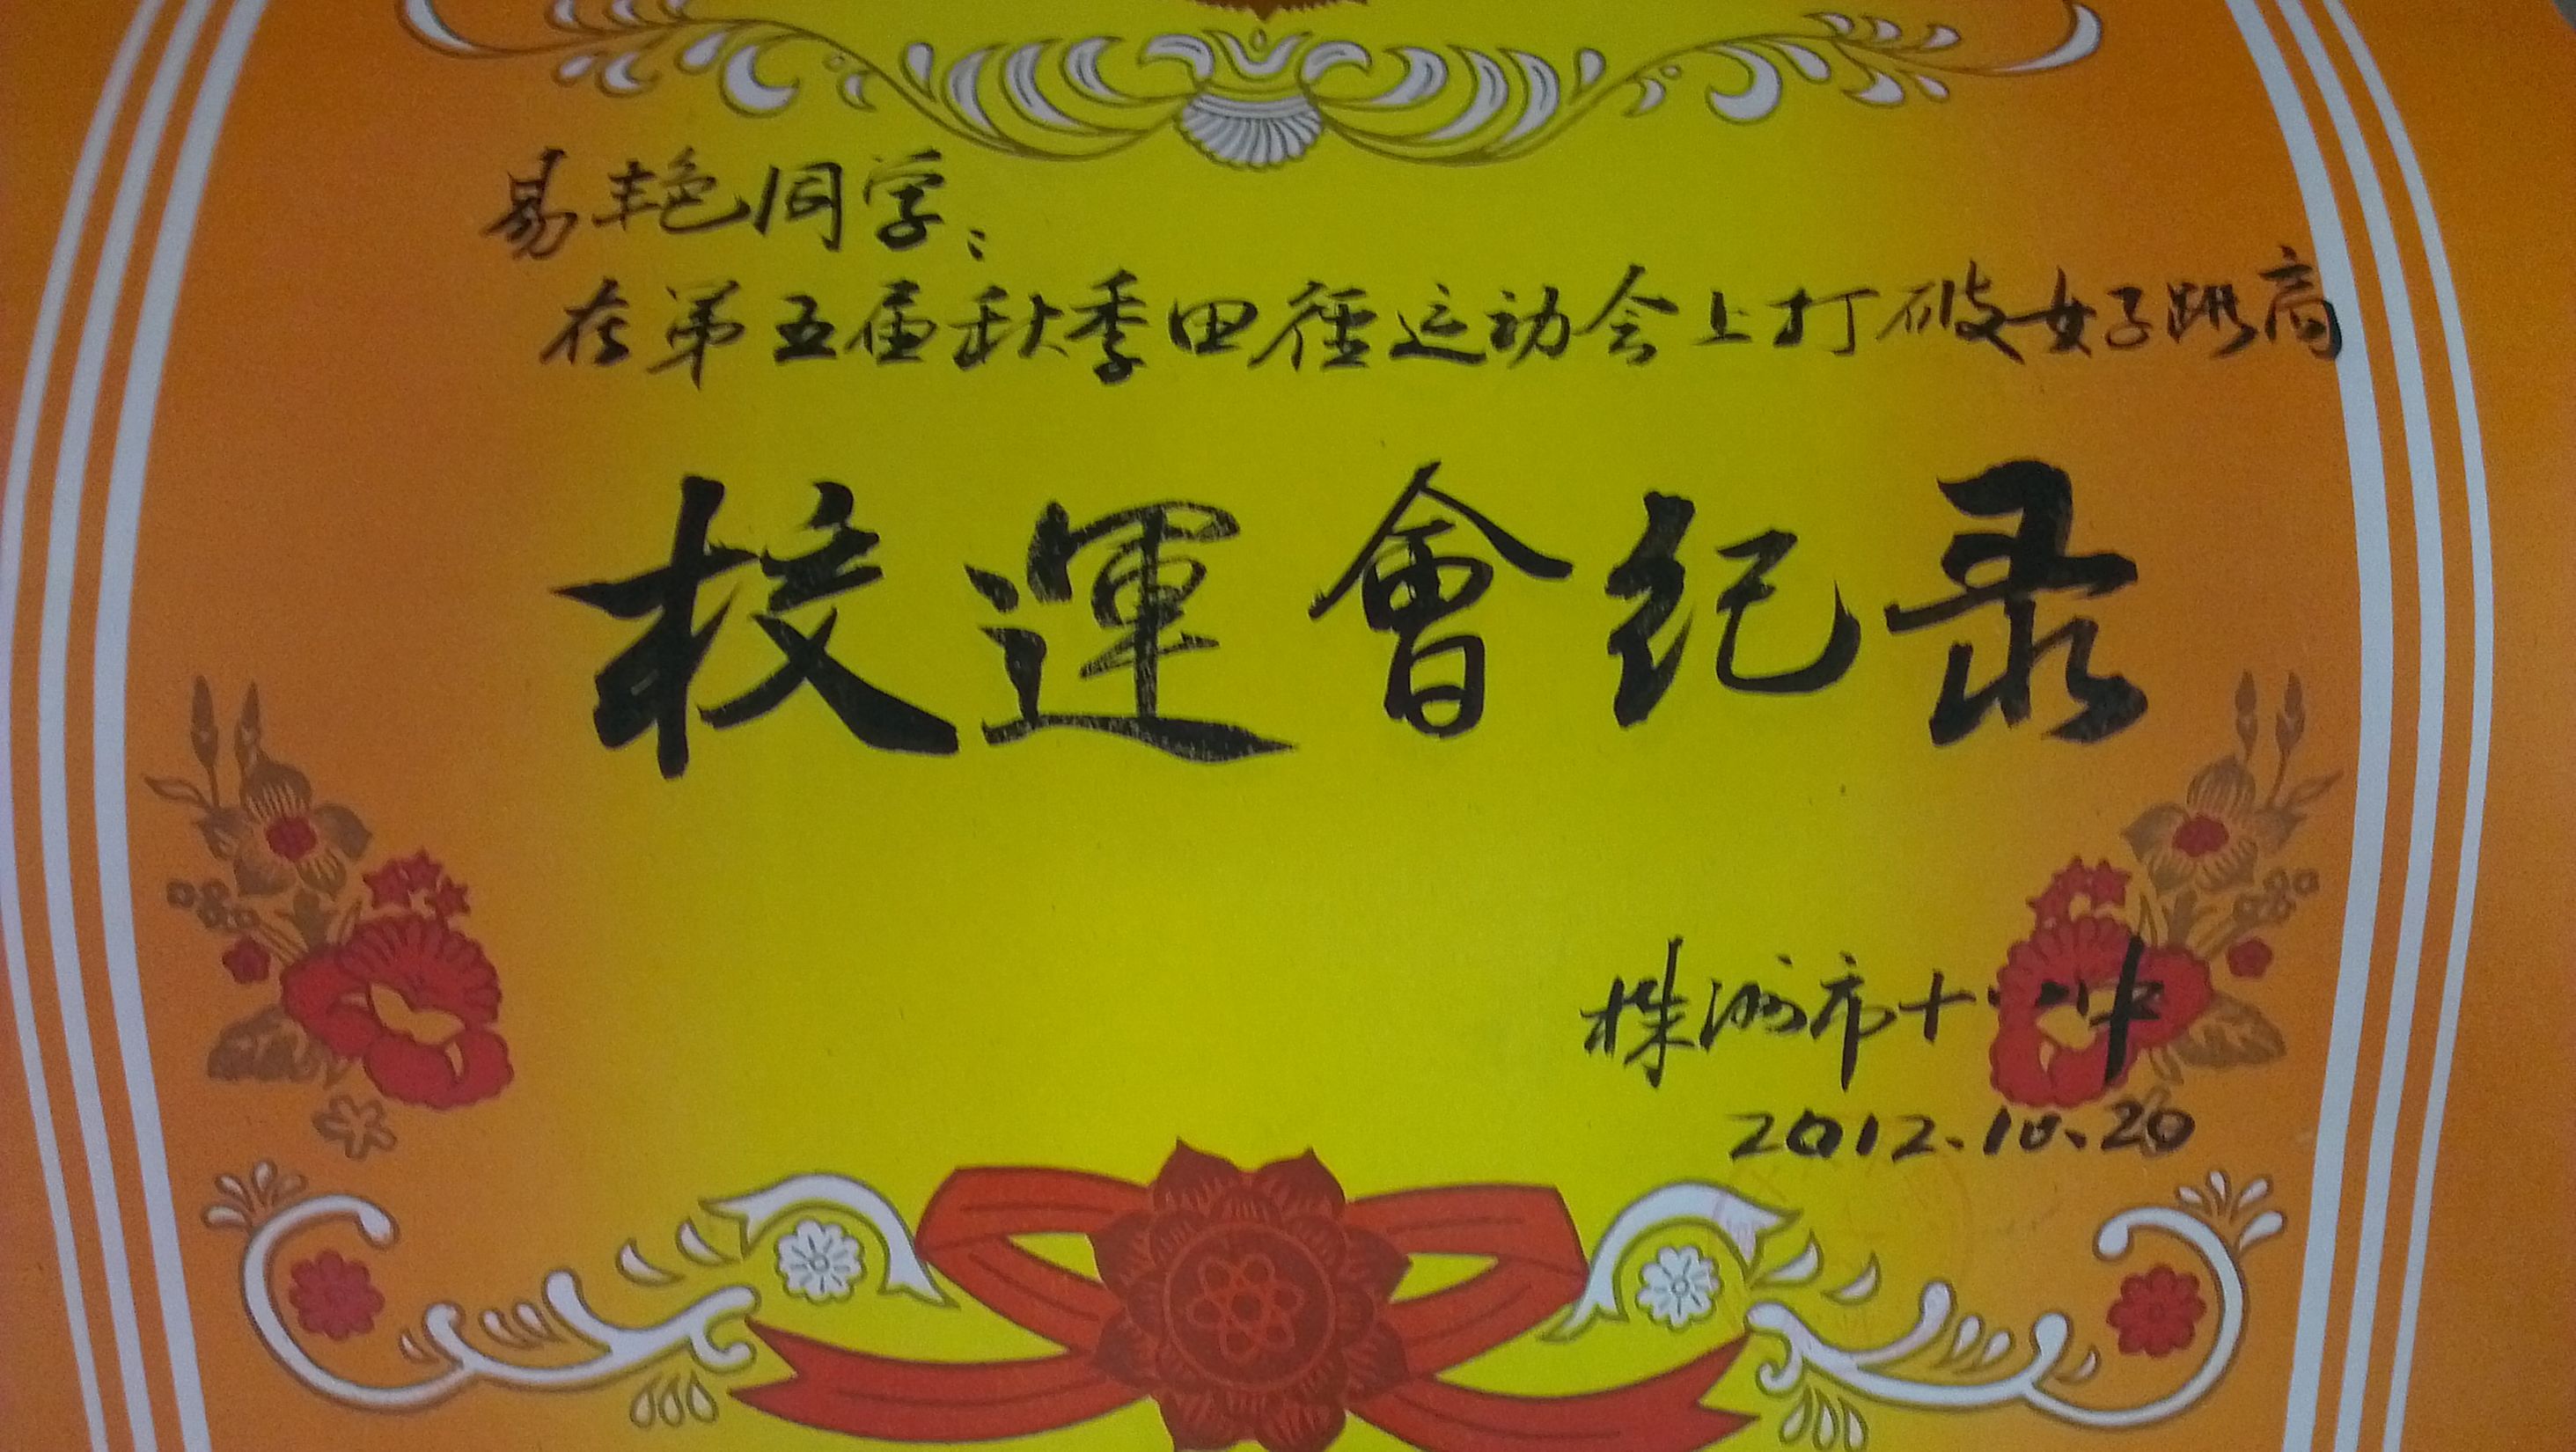 易艳同学：
在第五届秋季田径运动会上打破女子跳高
校運會纪录
株洲市十八中
2012.10.20